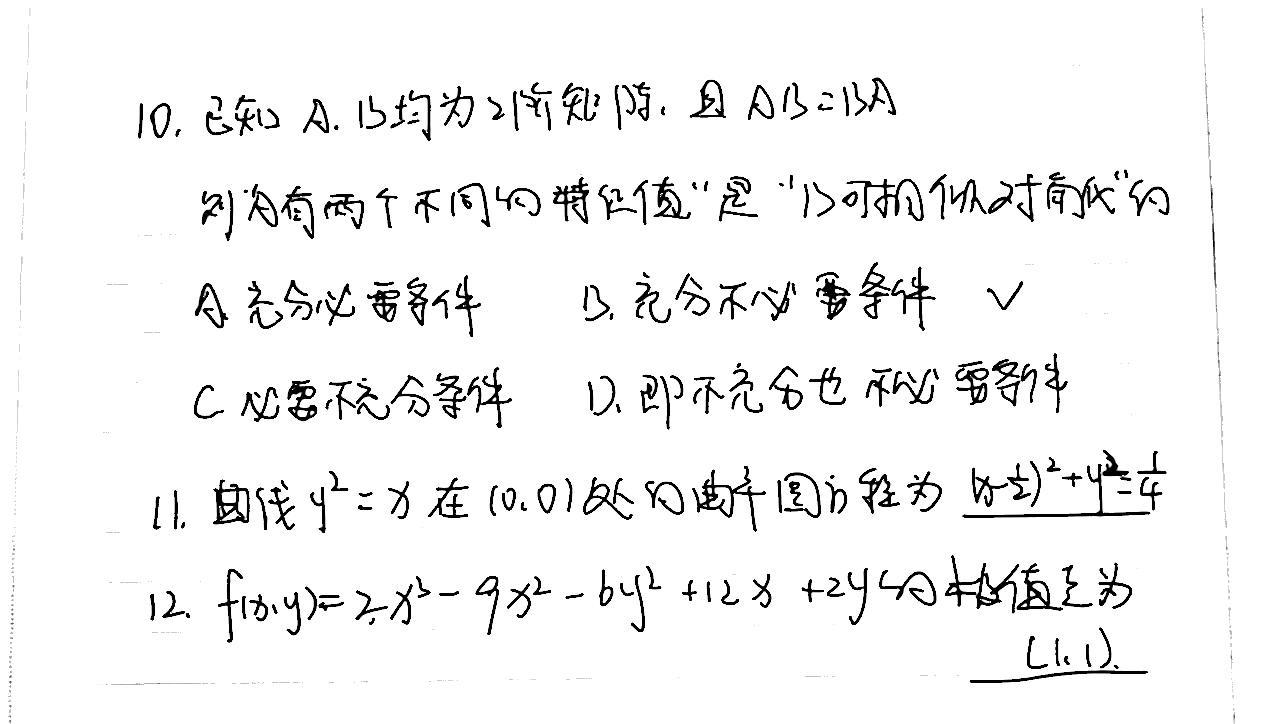 10. 已知 A. B均为2阶矩阵. 且 AB=BA
则“A有两个不同的特征值”是“B可相似对角化”的
A. 充分必要条件 B. 充分不必要条件 ✓
C 必要不充分条件 D. 即不充分也不必要条件
11. 曲线 y²=x 在 (0.0) 处的曲率圆方程为 (x-½)²+y²=¼
12. f(x,y)=2x³-9x²-6y²+12x+2y 的极值点为
(1.1).